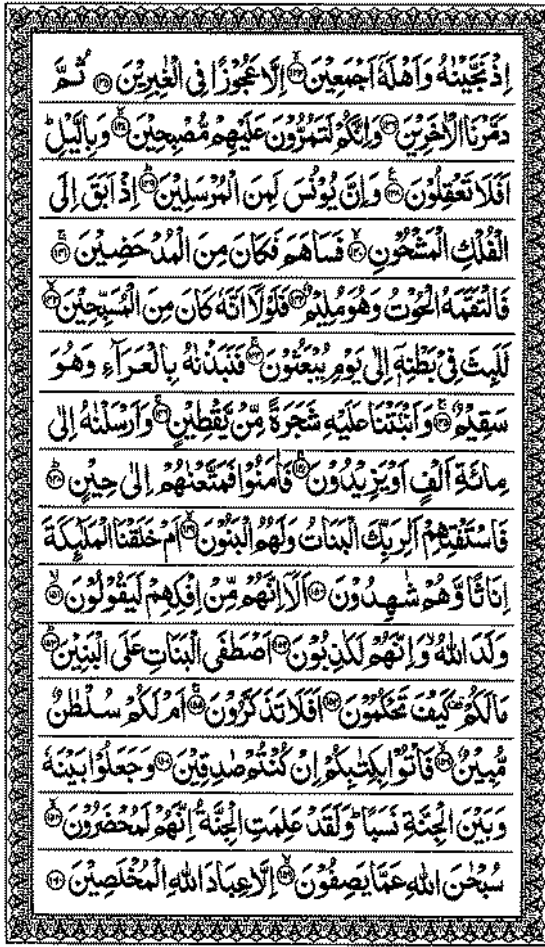 اِذْ نَجَّيْنٰهُ وَاَهْلَهٗٓ اَجْمَعِيْنَ ﴿۱۳۴﴾ اِلَّا عَجُوْزًا فِى الْغٰبِرِيْنَ ﴿۱۳۵﴾ ثُمَّ
دَمَّرْنَا الْاٰخَرِيْنَ ﴿۱۳۶﴾ وَاِنَّكُمْ لَتَمُرُّوْنَ عَلَيْهِمْ مُّصْبِحِيْنَ ﴿۱۳۷﴾ وَبِالَّيْلِؕ
اَفَلَا تَعْقِلُوْنَ ﴿۱۳۸﴾ وَاِنَّ يُوْنُسَ لَمِنَ الْمُرْسَلِيْنَ ﴿۱۳۹﴾ اِذْ اَبَقَ اِلَى
الْفُلْكِ الْمَشْحُوْنِ ﴿۱۴۰﴾ فَسَاهَمَ فَكَانَ مِنَ الْمُدْحَضِيْنَ ﴿۱۴۱﴾
فَالْتَقَمَهُ الْحُوْتُ وَهُوَ مُلِيْمٌ ﴿۱۴۲﴾ فَلَوْلَآ اَنَّهٗ كَانَ مِنَ الْمُسَبِّحِيْنَ ﴿۱۴۳﴾
لَلَبِثَ فِىْ بَطْنِهٖٓ اِلٰى يَوْمِ يُبْعَثُوْنَ ﴿۱۴۴﴾ فَنَبَذْنٰهُ بِالْعَرَآءِ وَهُوَ
سَقِيْمٌ ﴿۱۴۵﴾ وَاَنْۢبَتْنَا عَلَيْهِ شَجَرَةً مِّنْ يَّقْطِيْنٍ ﴿۱۴۶﴾ وَاَرْسَلْنٰهُ اِلٰى
مِائَةِ اَلْفٍ اَوْ يَزِيْدُوْنَ ﴿۱۴۷﴾ فَاٰمَنُوْا فَمَتَّعْنٰهُمْ اِلٰى حِيْنٍ ﴿۱۴۸﴾
فَاسْتَفْتِهِمْ اَلِرَبِّكَ الْبَنَاتُ وَلَهُمُ الْبَنُوْنَ ﴿۱۴۹﴾ اَمْ خَلَقْنَا الْمَلٰٓئِكَةَ
اِنَاثًا وَّهُمْ شٰهِدُوْنَ ﴿۱۵۰﴾ اَلَآ اِنَّهُمْ مِّنْ اِفْكِهِمْ لَيَقُوْلُوْنَ ﴿۱۵۱﴾
وَلَدَ اللّٰهُ وَاِنَّهُمْ لَكٰذِبُوْنَ ﴿۱۵۲﴾ اَصْطَفَى الْبَنَاتِ عَلَى الْبَنِيْنَ ﴿۱۵۳﴾
مَا لَكُمْ كَيْفَ تَحْكُمُوْنَ ﴿۱۵۴﴾ اَفَلَا تَذَكَّرُوْنَ ﴿۱۵۵﴾ اَمْ لَكُمْ سُلْطٰنٌ
مُّبِيْنٌ ﴿۱۵۶﴾ فَاْتُوْا بِكِتٰبِكُمْ اِنْ كُنْتُمْ صٰدِقِيْنَ ﴿۱۵۷﴾ وَجَعَلُوْا بَيْنَهٗ
وَبَيْنَ الْجِنَّةِ نَسَبًاؕ وَلَقَدْ عَلِمَتِ الْجِنَّةُ اِنَّهُمْ لَمُحْضَرُوْنَ ﴿۱۵۸﴾
سُبْحٰنَ اللّٰهِ عَمَّا يَصِفُوْنَ ﴿۱۵۹﴾ اِلَّا عِبَادَ اللّٰهِ الْمُخْلَصِيْنَ ﴿۱۶۰﴾